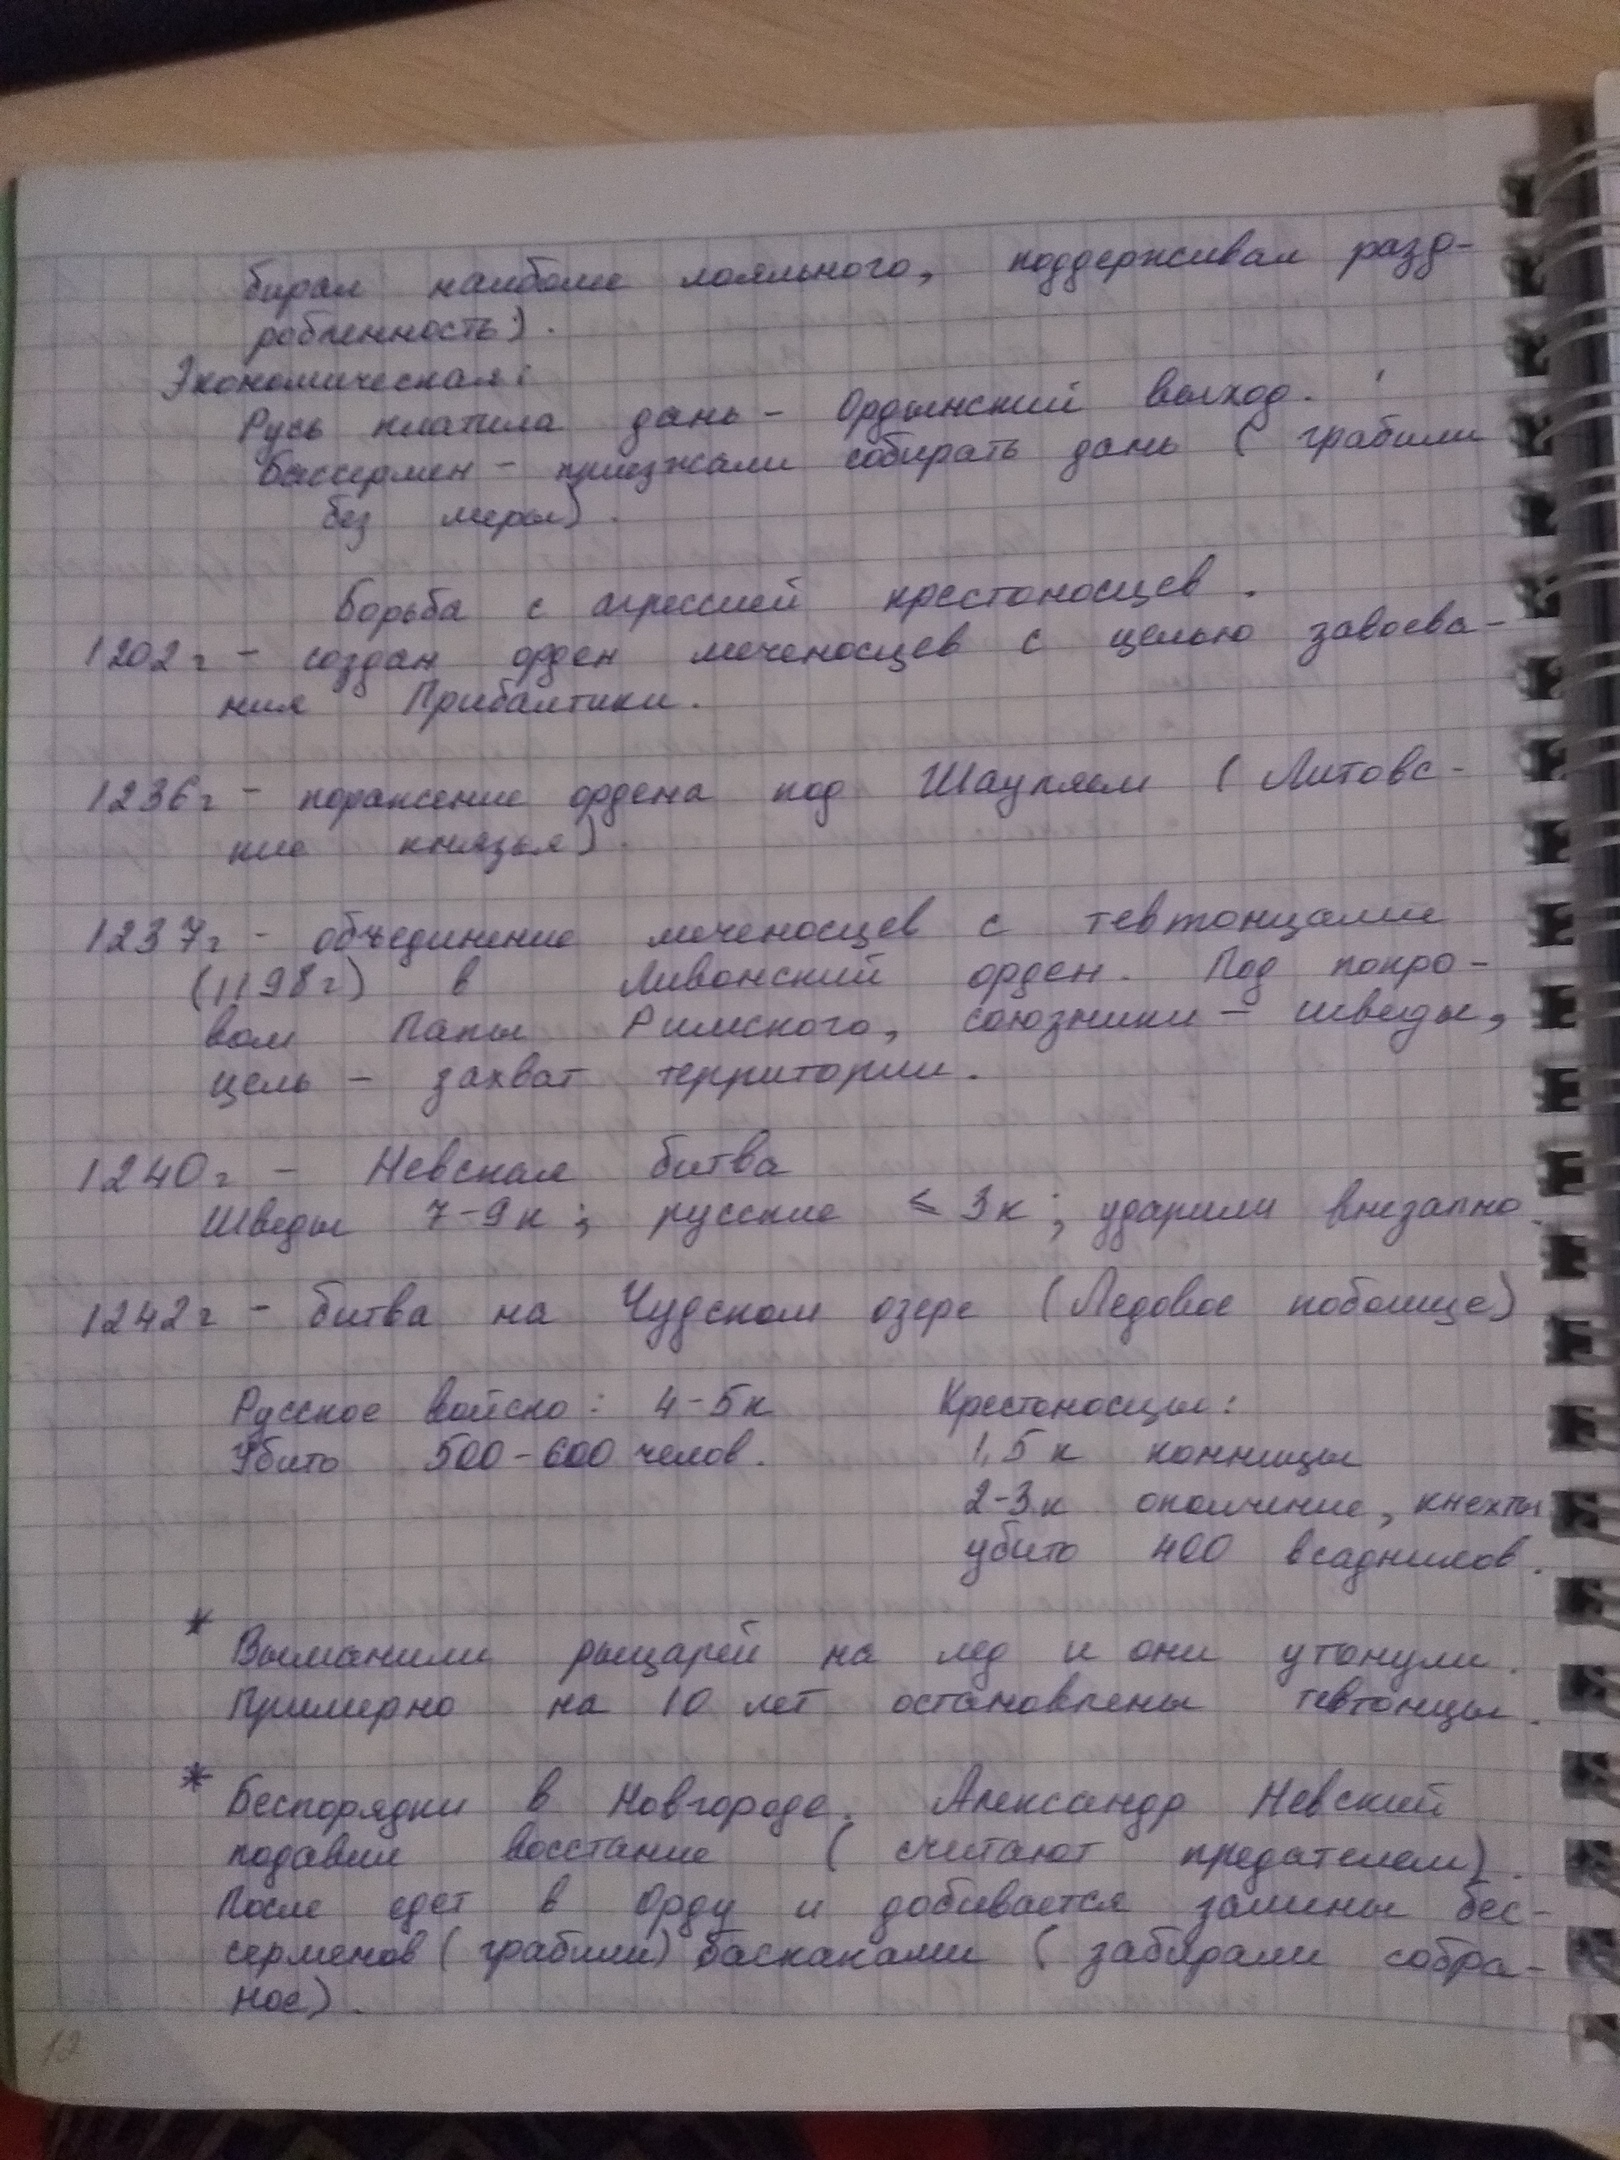 бирал наиболие лояльного, поддерживал разд-
робленность).
Экономическая:
Русь платила дань - Ордынский выход.
Бассермен - приезжали собирать дань ( грабили
без меры) .
Борьба с агрессией крестоносцев .
1202г - создан орден меченосцев с целью завоева-
ния Прибалтики.
1236г - поражение ордена под Шауляем ( Литовс-
кие князья) .
1237г - объединение меченосцев с тевтонцами
(1198г) в Ливонский орден. Под покро-
вом Папы Римского, союзники - шведы,
цель - захват территории.
1240г - Невская битва
Шведы 7-9к ; русские ≤ 3к ; ударили внезапно.
1242г - битва на Чудском озере (Ледовое побоище)
Русское войско : 4-5к
Убито 500-600 челов.
Крестоносцы :
1,5к конницы
2-3к ополчение, кнехты
убито 400 всадников.
* Выманили рыцарей на лед и они утонули.
Примерно на 10 лет остановлены тевтонцы.
* Беспорядки в Новгороде. Александр Невский
подавил восстание ( считают предателем).
После едет в Орду и добивается замены бес-
серменов ( грабили) баскаками ( забирали собра-
ное) .
12